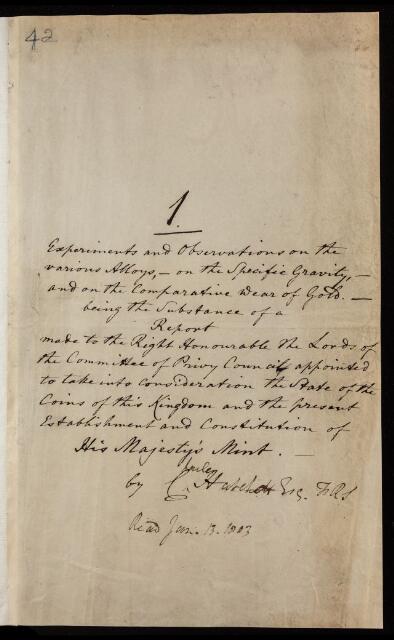 42
1.
Experiments and Observations on the
various Alloys, – on the Specific Gravity, –
and on the Comparative Wear of Gold. –
being the Substance of a
Report
made to the Right Honourable the Lords of
the Committee of Privy Council appointed
to take into Consideration the State of the
Coins of this Kingdom and the present
Establishment and Constitution of
His Majesty's Mint. –
by C. Hatchett Esq. FRS
Read Jan. 13. 1803